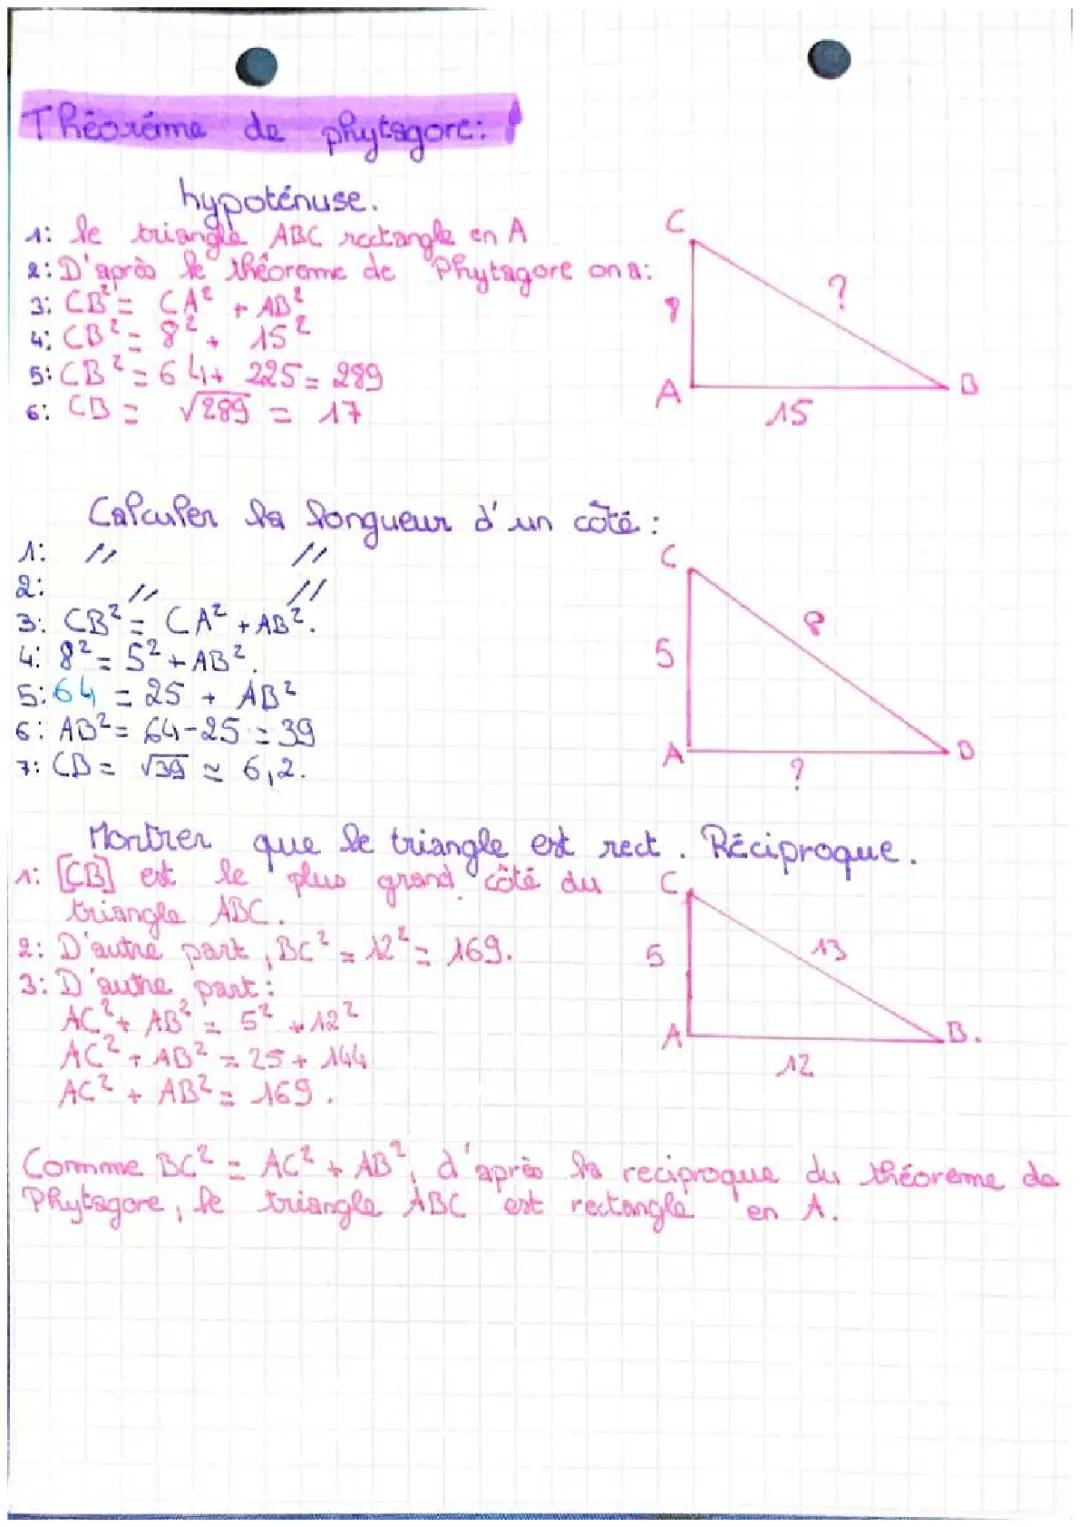 Théoréme de phytagore:
hypoténuse.
1: le triangle ABC rectangle en A
2: D'après le théoreme de Phytagore on a:
3: CB² = CA² + AB²
4: CB² = 8² + 15²
5: CB² = 64 + 225 = 289
6: CB = √289 = 17
C
8
?
A
15
B
Calculer la longueur d'un côté :
1: // //
2: // //
3: CB² = CA² + AB².
4: 8² = 5² + AB².
5: 64 = 25 + AB²
6: AB² = 64-25 = 39
7: CB = √39 ≃ 6,2.
C
5
8
A
?
B
Montrer que le triangle est rect. Réciproque.
1: [CB] est le plus grand côté du
triangle ABC.
2: D'autre part, BC² = 12² = 169.
3: D'autre part:
AC² + AB² = 5² + 12²
AC² + AB² = 25 + 144
AC² + AB² = 169.
C
5
13
A
12
B.
Commme BC² = AC² + AB², d'après la reciproque du théoreme de
Phytagore, le triangle ABC est rectangle en A.